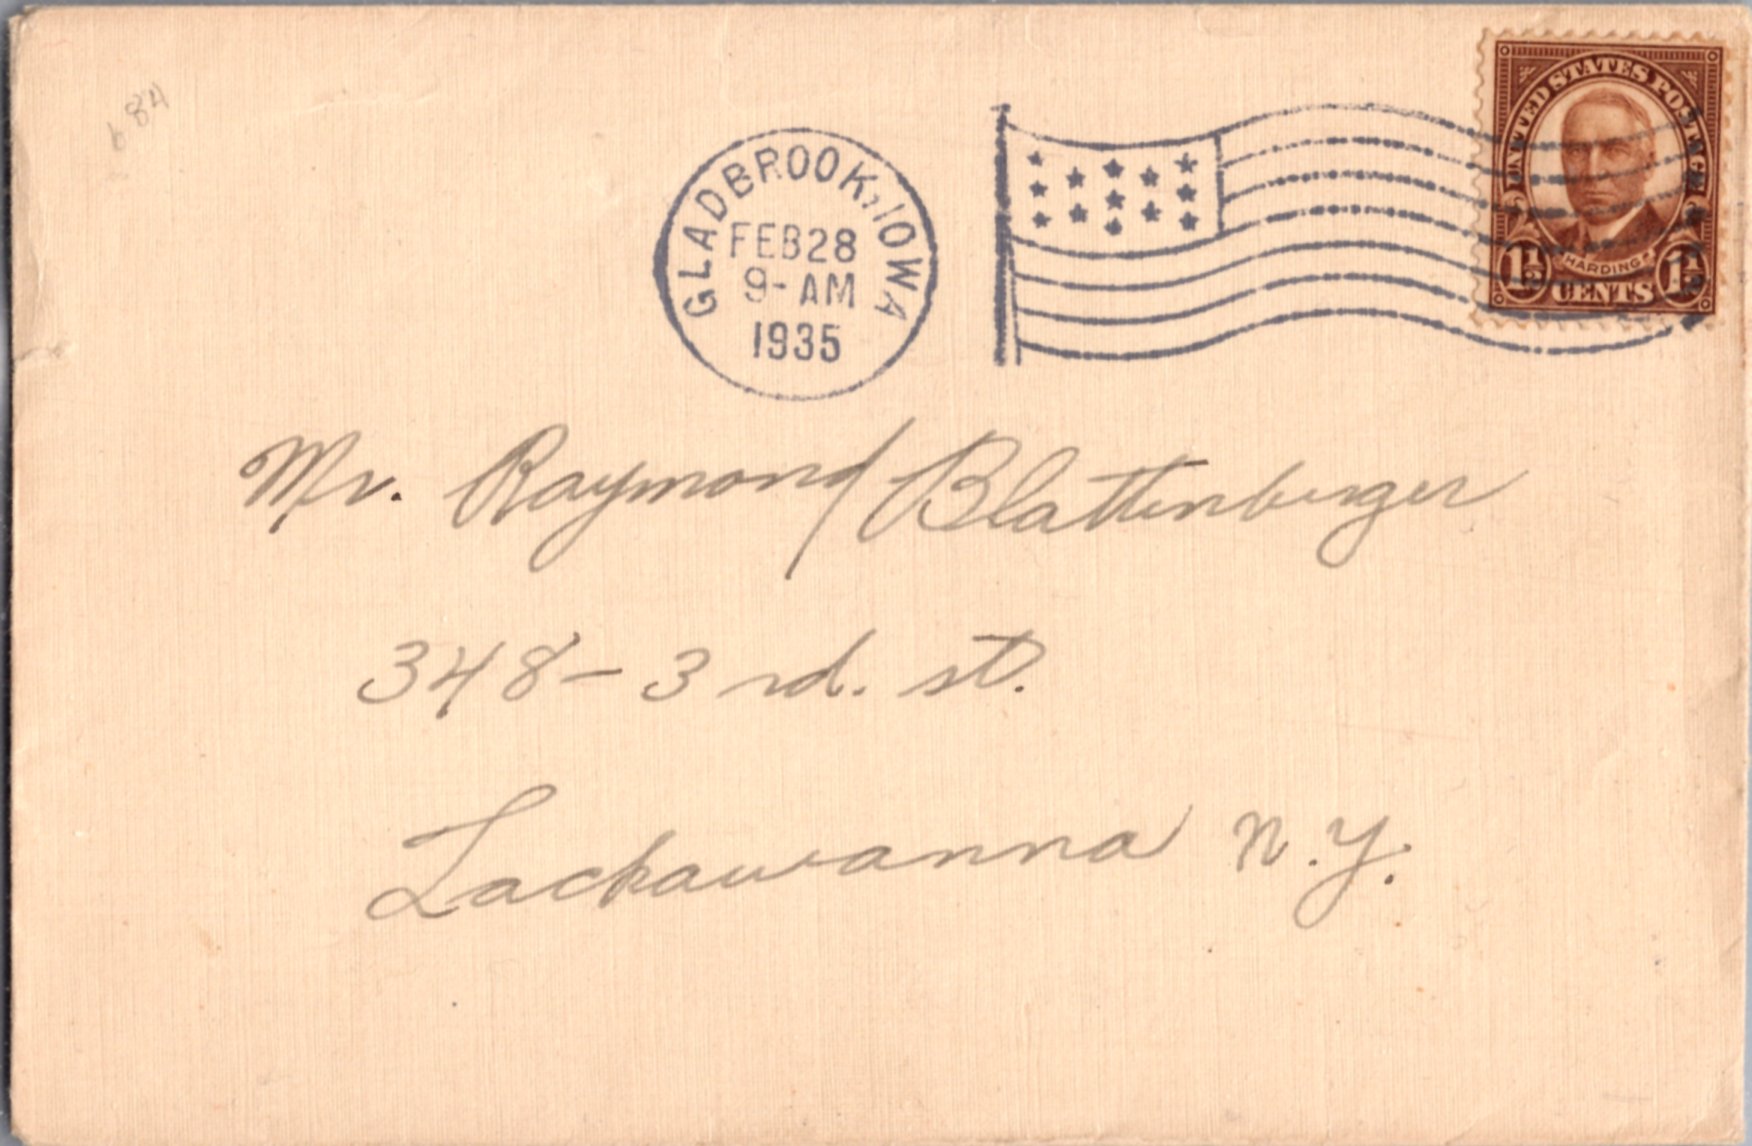 b 84
GLADBROOK, IOWA
FEB 28
9-AM
1935
UNITED STATES POSTAGE
HARDING
1½ 1½
CENTS
Mr. Raymond Blattenberger
348 - 3rd. st.
Lackawanna N.Y.